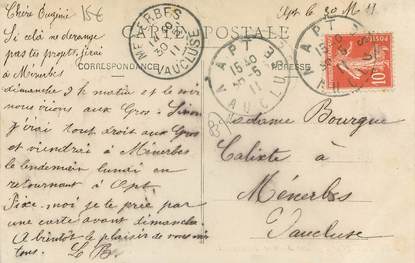 Chère Eugénie
15€
Apt, le 30 M 11
Si cela ne dérange
pas tes projets j'irai
à Ménerbes
CARTE POSTALE
CORRESPONDANCE
ADRESSE
MENERBES
30 11
VAUCLUSE
APT
15 40
30-5
11
VAUCLUSE
APT
15 40
11
10
dimanche le matin et le soir
nous irions aux Gros. Sinon
j'irai tout droit aux Gros
et viendrai à Ménerbes
le lendemain lundi en
retournant à Apt.
Fixe-moi je te prie par
une carte avant dimanche.
A bientôt le plaisir de vous voir
tous.
Madame Bourgue
Calixte à
Ménerbes
Vaucluse